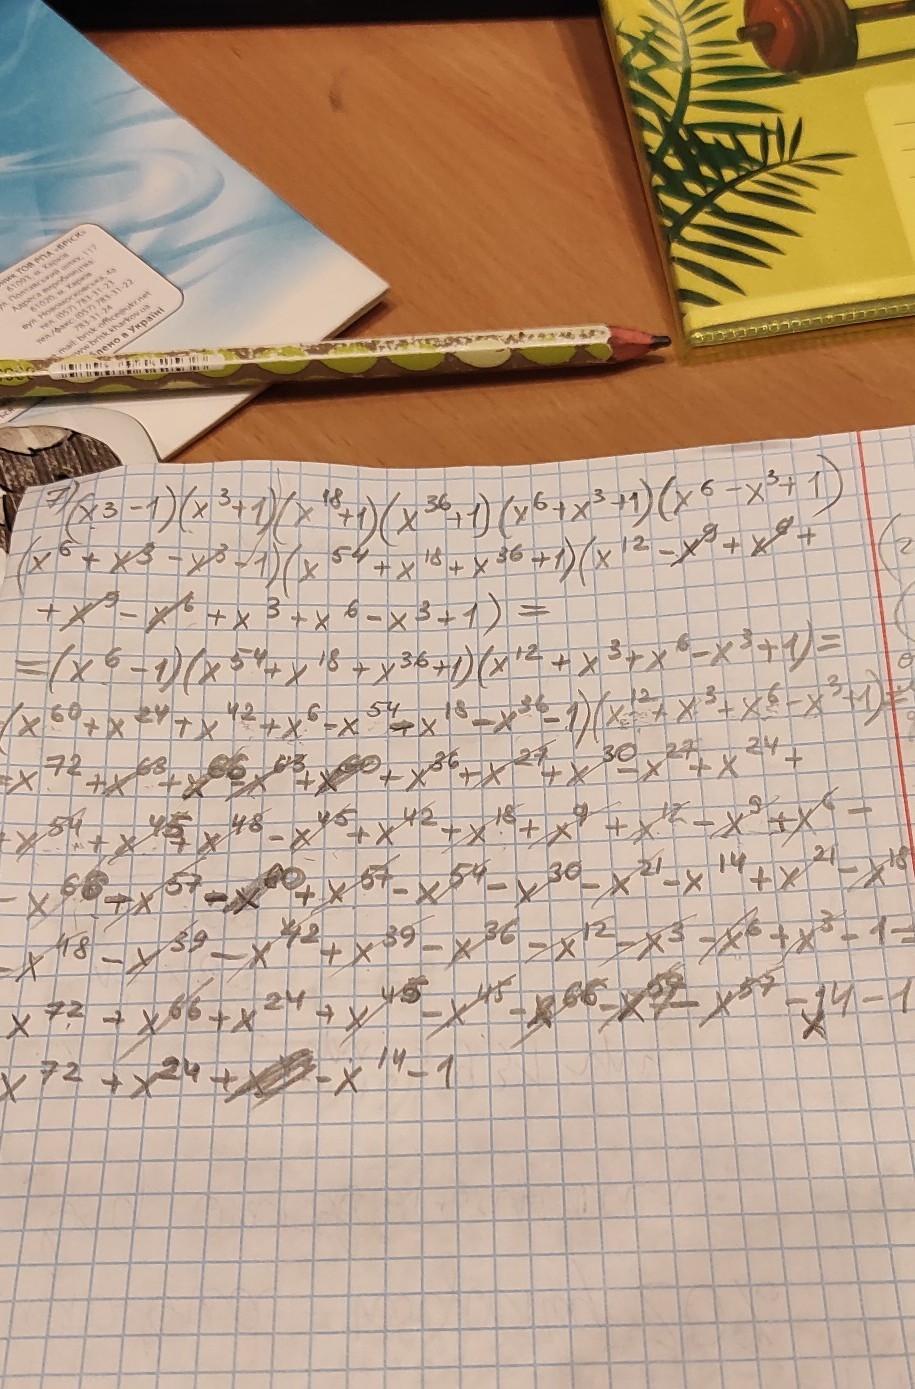 ник ТОВ РПА «БРІСК»
61093, м. Харків
ул. Полтавський шлях, 117
Адреса виробництва:
61020, м. Харків
вул. Новомосковська, 4а
тел. (057) 783-31-23
тел./факс (057) 783-31-22
783-31-24
mail: brisk-office@ukr.net
www.brisk.kharkov.ua
лено в Україні
7) (x3-1)(x^3+1)(x^18+1)(x^36+1)(x^6+x^3+1)(x^6-x^3+1)
(x^6+x^3-x^3-1)(x^54+x^18+x^36+1)(x^12-x^9+x^9+
+x^9-x^6+x^3+x^6-x^3+1)=
=(x^6-1)(x^54+x^18+x^36+1)(x^12+x^3+x^6-x^3+1)=
(x^60+x^24+x^42+x^6-x^54-x^18-x^36-1)(x^12+x^3+x^6-x^3+1)=
=x^72+x^63+x^66-x^63+x^60+x^36+x^27+x^30-x^27+x^24+
+x^54+x^45+x^48-x^45+x^42+x^18+x^9+x^12-x^9+x^6-
-x^66-x^57-x^60+x^57-x^54-x^30-x^21-x^14+x^21-x^18
-x^48-x^39-x^42+x^39-x^36-x^12-x^3-x^6+x^3-1=
x^72+x^66+x^24+x^45-x^45-x^66-x^57-x^57-x^14-1
x^72+x^24+-x^14-1